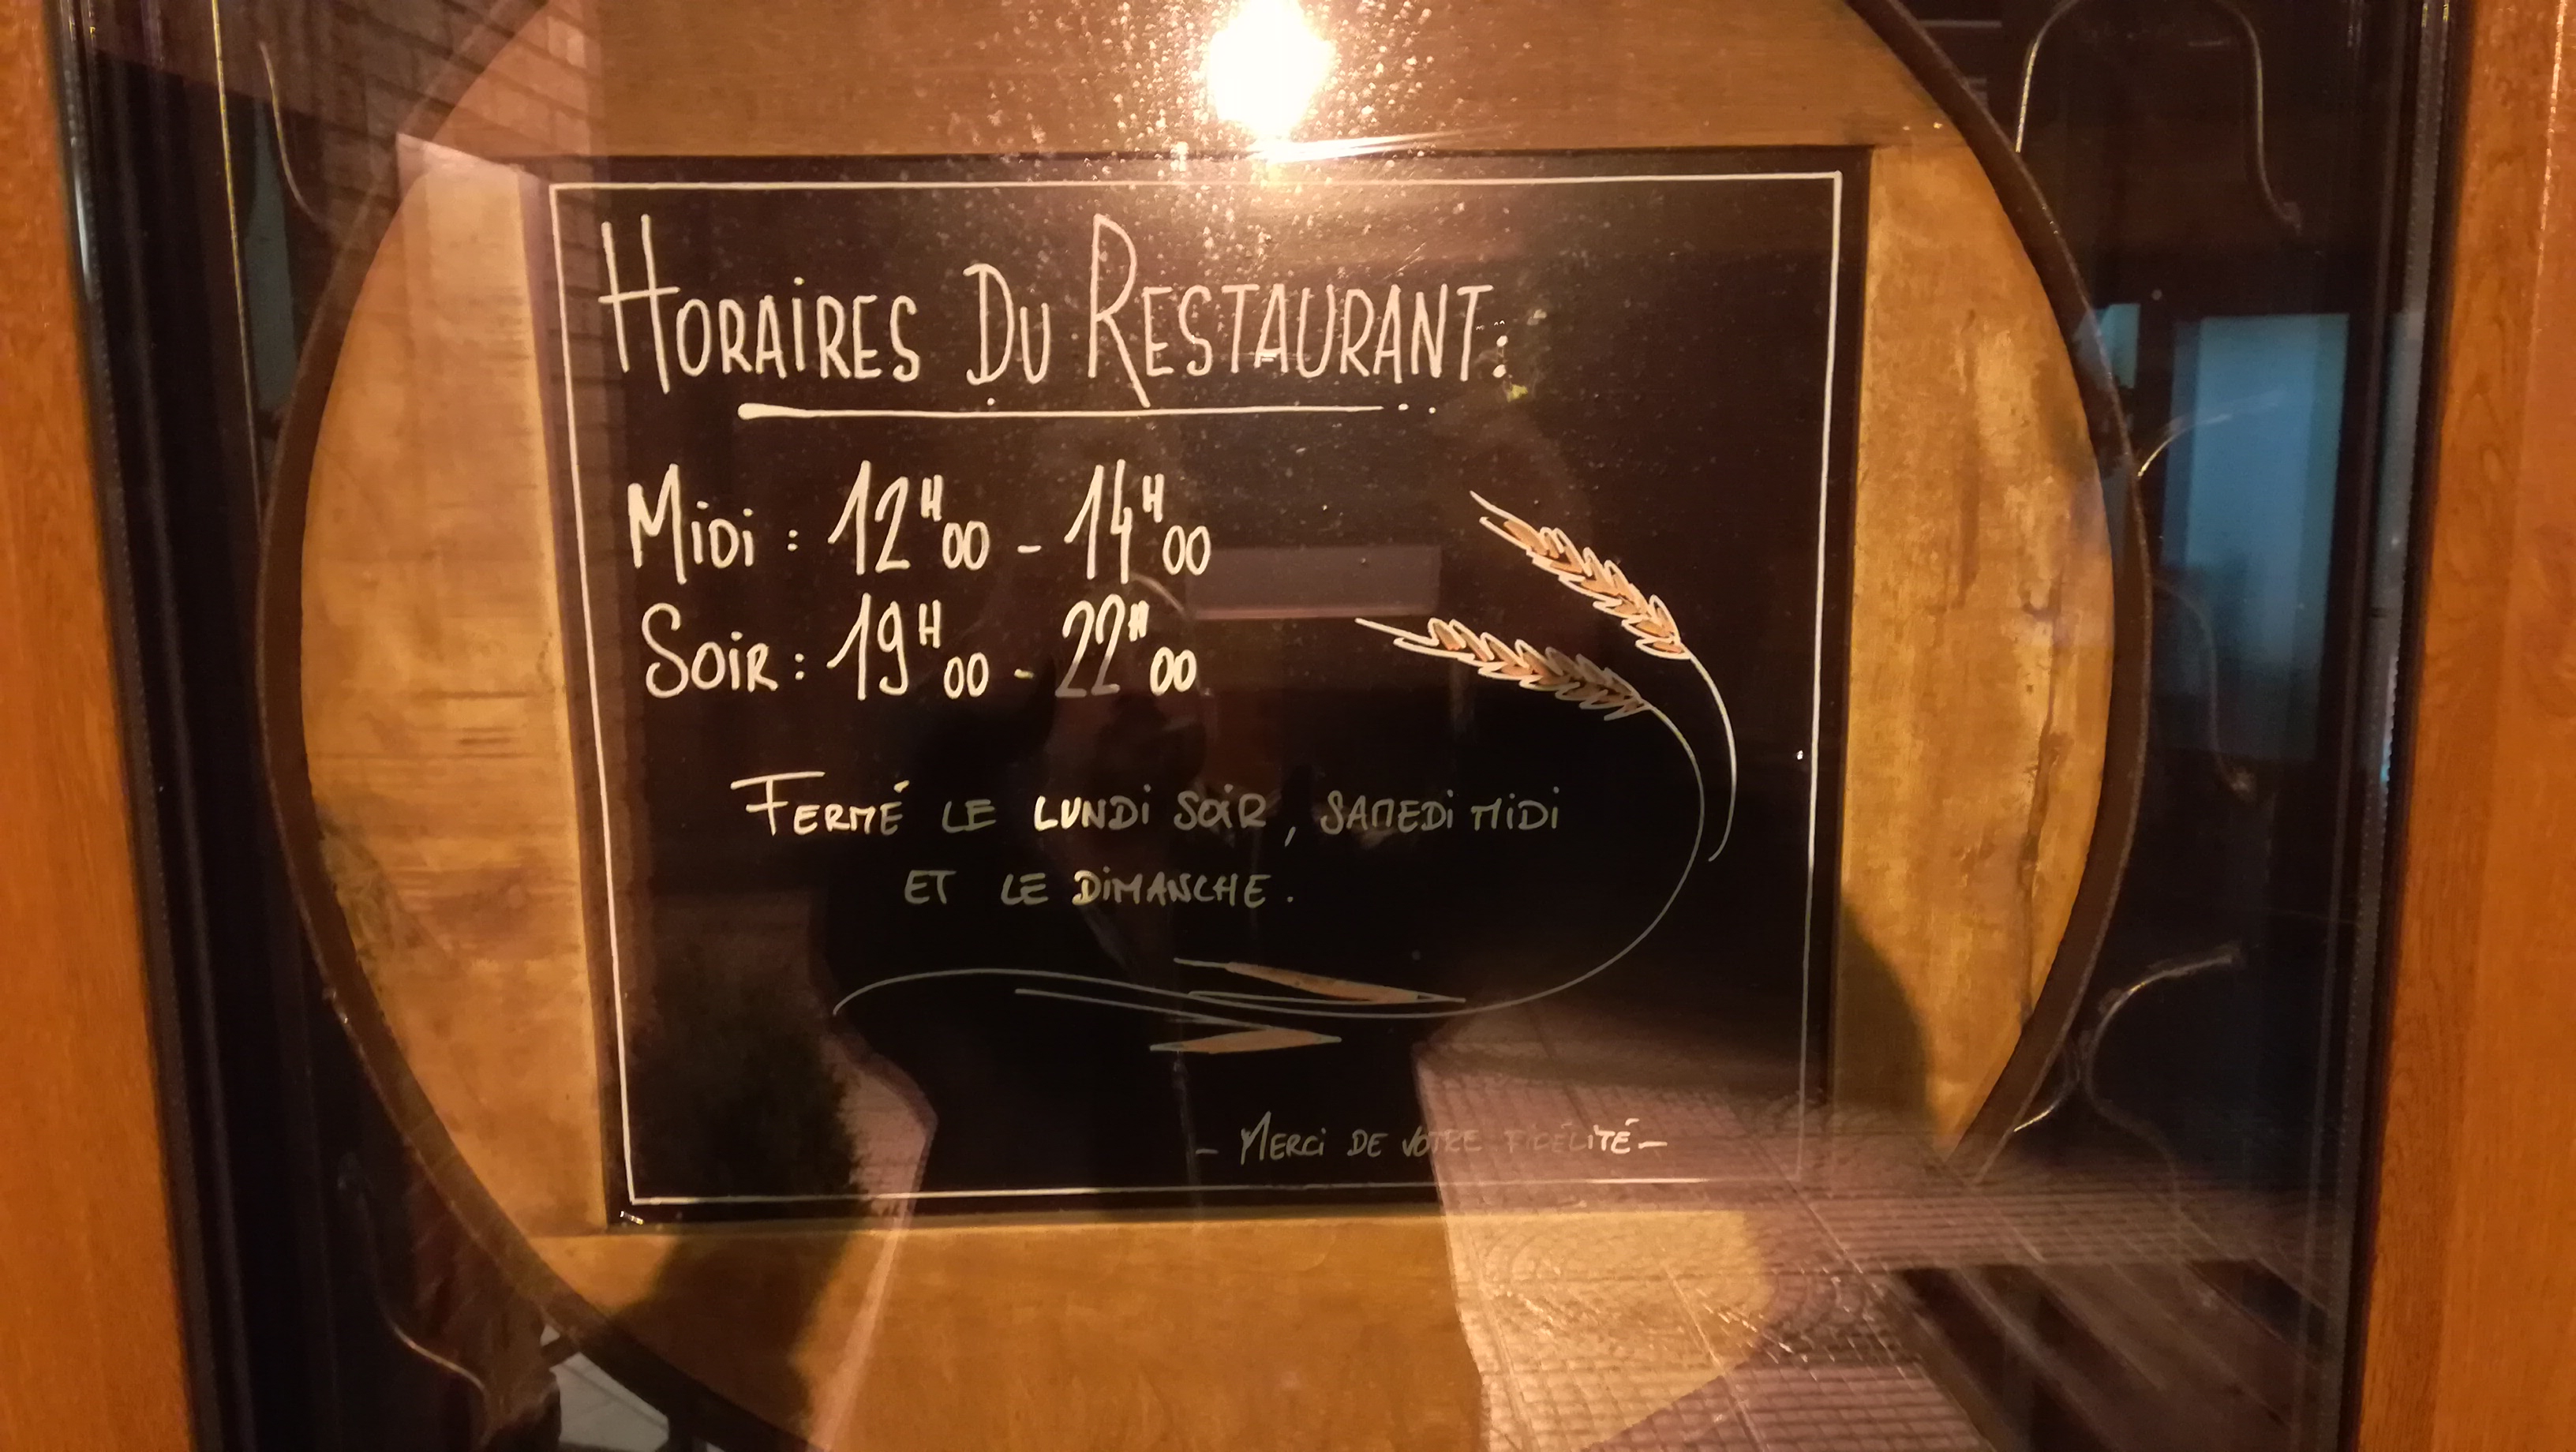 HORAIRES DU RESTAURANT:
MIDI : 12H00 - 14H00
SOIR : 19H00 - 22H00
FERMÉ LE LUNDI SOIR, SAMEDI MIDI
ET LE DIMANCHE.
- MERCI DE VOTRE FIDÉLITÉ -